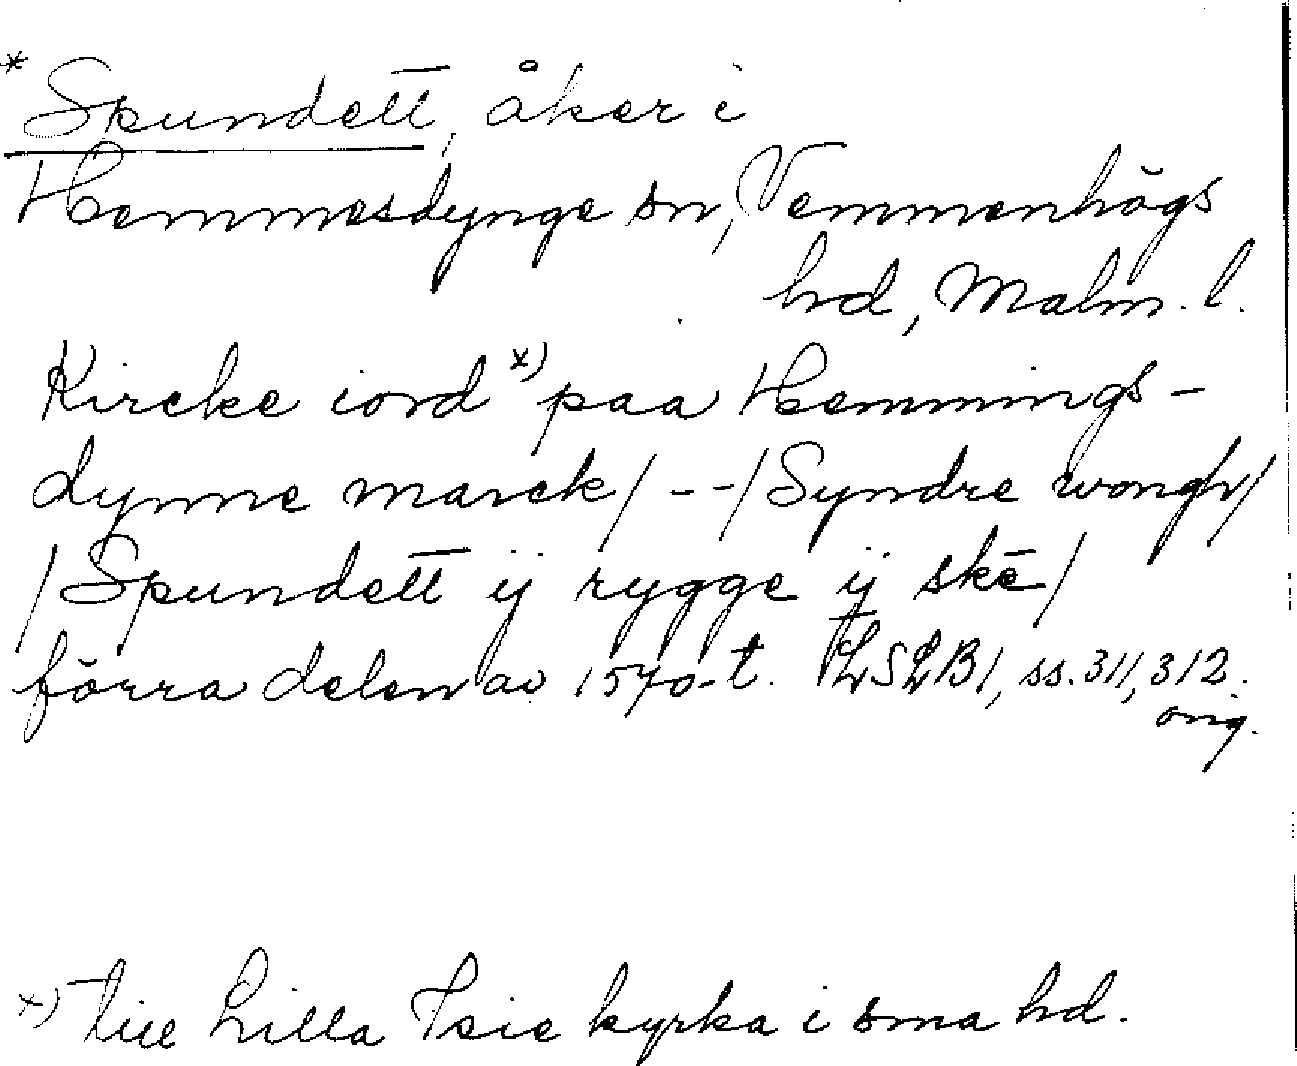 * Spundett, åker i
Hemmesdynge sn, Vemmenhögs
hd, Malm. l.
Kircke iord *) paa Hemmings-
dynne marck / - - / Syndre wongh /
/ Spundett ij rygge ij skē /
förra delen av 1570-t. LSLB1, ss. 311, 312.
orig.
*) till Lilla Isie kyrka i sma hd.